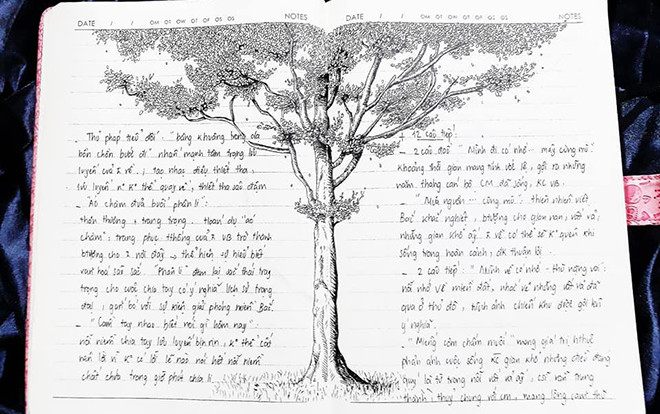 DATE / / OM OT OW OT OF OS OS NOTES
- Thủ pháp tiểu đối: "bâng khuâng trong dạ
bồn chồn bước đi" nhấn mạnh tâm trạng lưu
luyến của 2 về, tạo nhạc điệu thiết tha,
lưu luyến n' K thể quay về, thiết tha sâu đậm
- "Áo chàm đưa buổi phân li":
thân thương, trang trọng. Hoán dụ "áo
chàm": trang phục tthống của VB trở thành
btượng cho nơi đây → thể hiện sự hiểu biết
văn hoá sâu sắc. "Phân li" đem lại sắc thái trây
trọng cho cuộc chia tay có ý nghĩa lịch sử trọng
đại, gắn bó với sự kiện giải phóng miền Bắc.
- "Cầm tay nhau biết nói gì hôm nay":
nỗi niềm chia tay lưu luyến bịn rịn, K thể cất
nên lời vì K có lời lẽ nào nói hết nỗi niềm
chất chứa trong giờ phút chia li.
DATE / / OM OT OW OT OF OS OS NOTES
+ 12 câu tiếp:
- 2 câu đầu "Mình đi có nhớ ... mây cùng mù":
Khoảng thời gian mang tính ước lệ, gợi ra những
năm tháng cán bộ CM đã sống, KC VB.
- "Mưa nguồn ... cùng mù": thiên nhiên việt
Bắc khắc nghiệt, btượng cho gian nan, vất vả,
những gian khổ ấy. 2 về có thể sẽ K quên khi
sống trong hoàn cảnh, đk thuận lợi.
- 2 câu tiếp: "Mình về có nhớ - thù nặng vai":
nỗi nhớ về miền đất, nhắc về những vất vả đã
qua ở thủ đô, hình ảnh chiến khu được gợi khi
ý nghĩa.
- "Miếng cơm chấm muối" mang giá trị hthực
phản ánh cuộc sống KC gian khổ nhưng điều đáng
quý là từ trong nỗi vất vả ấy, cái vẫn trung
thành, thuỷ chung với CM, mang lòng căm thù